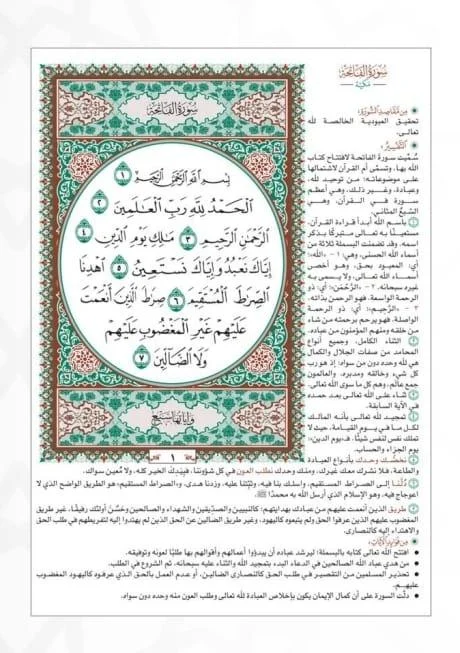 سُورَةُ الفَاتِحَةِ
مَكِّيَّة
سُورَةُ الفَاتِحَةِ
بِسْمِ اللَّهِ الرَّحْمَٰنِ الرَّحِيمِ ١
الْحَمْدُ لِلَّهِ رَبِّ الْعَالَمِينَ ٢
الرَّحْمَٰنِ الرَّحِيمِ ٣ مَالِكِ يَوْمِ الدِّينِ ٤
إِيَّاكَ نَعْبُدُ وَإِيَّاكَ نَسْتَعِينُ ٥ اهْدِنَا
الصِّرَاطَ الْمُسْتَقِيمَ ٦ صِرَاطَ الَّذِينَ أَنْعَمْتَ
عَلَيْهِمْ غَيْرِ الْمَغْضُوبِ عَلَيْهِمْ
وَلَا الضَّالِّينَ ٧
١
مِن مَّقَاصِدِ السُّورَةِ:
تحقيق العبودية الخالصة لله
تعالى.
التَّفْسِيرُ:
سُمِّيت سورة الفاتحة لافتتاح كتاب
الله بها، وتسمَّى أم القرآن لاشتمالها
على موضوعاته؛ من توحيد لله،
وعبادة، وغير ذلك، وهي أعظم
سورة في القرآن، وهي
السَّبعُ المثاني.
١ باسم الله أبدأ قراءة القرآن،
مستعينًا به تعالى متبركًا بذكر
اسمه. وقد تضمنت البسملة ثلاثة من
أسماء الله الحسنى، وهي: ١ - «الله»؛
أي: المعبود بحق، وهو أخص
أسماء الله تعالى، ولا يسمى به
غيره سبحانه. ٢ - «الرَّحْمَن»؛ أي: ذو
الرحمة الواسعة. فهو الرحمن بذاته.
٣ - «الرَّحِيم»؛ أي: ذو الرحمة
الواصلة. فهو يرحم برحمته من شاء
من خلقه ومنهم المؤمنون من عباده.
٢ الثناء الكامل، وجميع أنواع
المحامد من صفات الجلال والكمال
هي له وحده دون من سواه؛ إذ هو رب
كل شيء وخالقه ومدبره. والعالمون
جمع عالَم، وهم كل ما سوى الله تعالى.
٣ ثناء على الله تعالى بعد حمده
في الآية السابقة.
٤ تمجيد لله تعالى بأنه المالك
لكل ما في يوم القيامة، حيث لا
تملك نفس لنفس شيئًا. فـ«يوم الدين»:
يوم الجزاء والحساب.
٥ نخصُّك وحدك بأنواع العبادة
والطاعة، فلا نشرك معك غيرك، ومنك وحدك نطلب العون في كل شؤوننا، فبيدك الخير كله، ولا مُعين سواك.
٦ دُلَّنا إلى الصراط المستقيم، واسلك بنا فيه، وثبِّتنا عليه، وزدنا هدى. و«الصراط المستقيم» هو الطريق الواضح الذي لا
اعوجاج فيه، وهو الإسلام الذي أرسل الله به محمدًا ﷺ.
٧ طريق الذين أنعمت عليهم من عبادك بهدايتهم؛ كالنبيين والصدِّيقين والشهداء والصالحين وحسُنَ أولئك رفيقًا، غير طريق
المغضوب عليهم الذين عرفوا الحق ولم يتبعوه كاليهود، وغير طريق الضالين عن الحق الذين لم يهتدوا إليه لتفريطهم في طلب الحق
والاهتداء إليه كالنصارى.
مِن فَوَائِدِ الآيَاتِ:
• افتتح الله تعالى كتابه بالبسملة؛ ليرشد عباده أن يبدؤوا أعمالهم وأقوالهم بها طلبًا لعونه وتوفيقه.
• من هدي عباد الله الصالحين في الدعاء البدء بتمجيد الله والثناء عليه سبحانه، ثم الشروع في الطلب.
• تحذير المسلمين من التقصير في طلب الحق كالنصارى الضالين، أو عدم العمل بالحق الذي عرفوه كاليهود المغضوب
عليهم.
• دلَّت السورة على أن كمال الإيمان يكون بإخلاص العبادة لله تعالى وطلب العون منه وحده دون سواه.